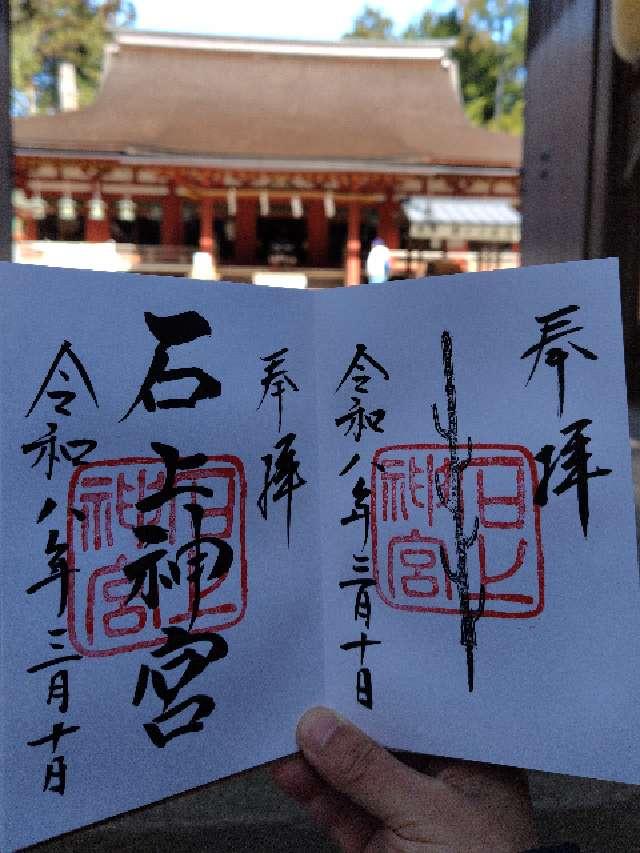 奉拝
令和八年三月十日
奉拝
石上神宮
令和八年三月十日
石上
神宮
石上
神宮